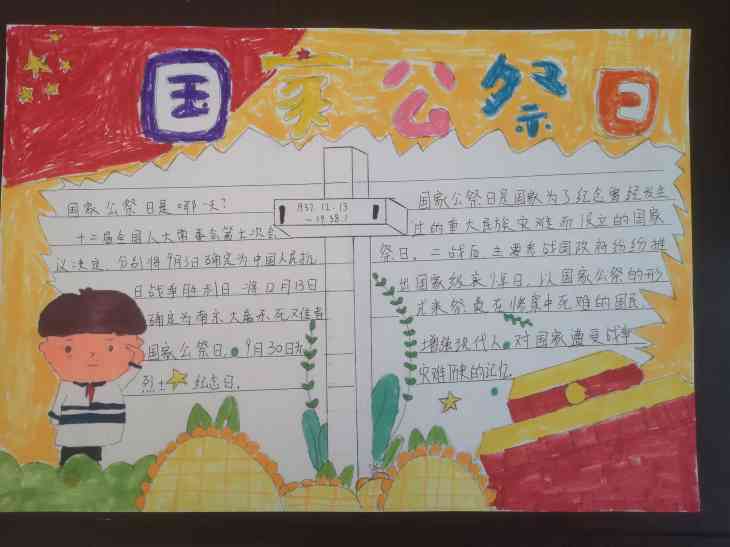 国家公祭日
国家公祭日是哪一天?
十二届全国人大常委会第七次会
议决定,分别将9月3日确定为中国人民抗
日战争胜利日,将12月13日
确定为南京大屠杀死难者
国家公祭日,9月30日为
烈士纪念日。
1937.12.13
~1938.1
国家公祭日是国家为了纪念曾经发生
过的重大民族灾难而设立的国家
祭日。二战后,主要参战国政府纷纷推
出国家级哀悼日,以国家公祭的形
式来祭奠在惨案中死难的国民
增强现代人对国家遭受战争
灾难历史的记忆。